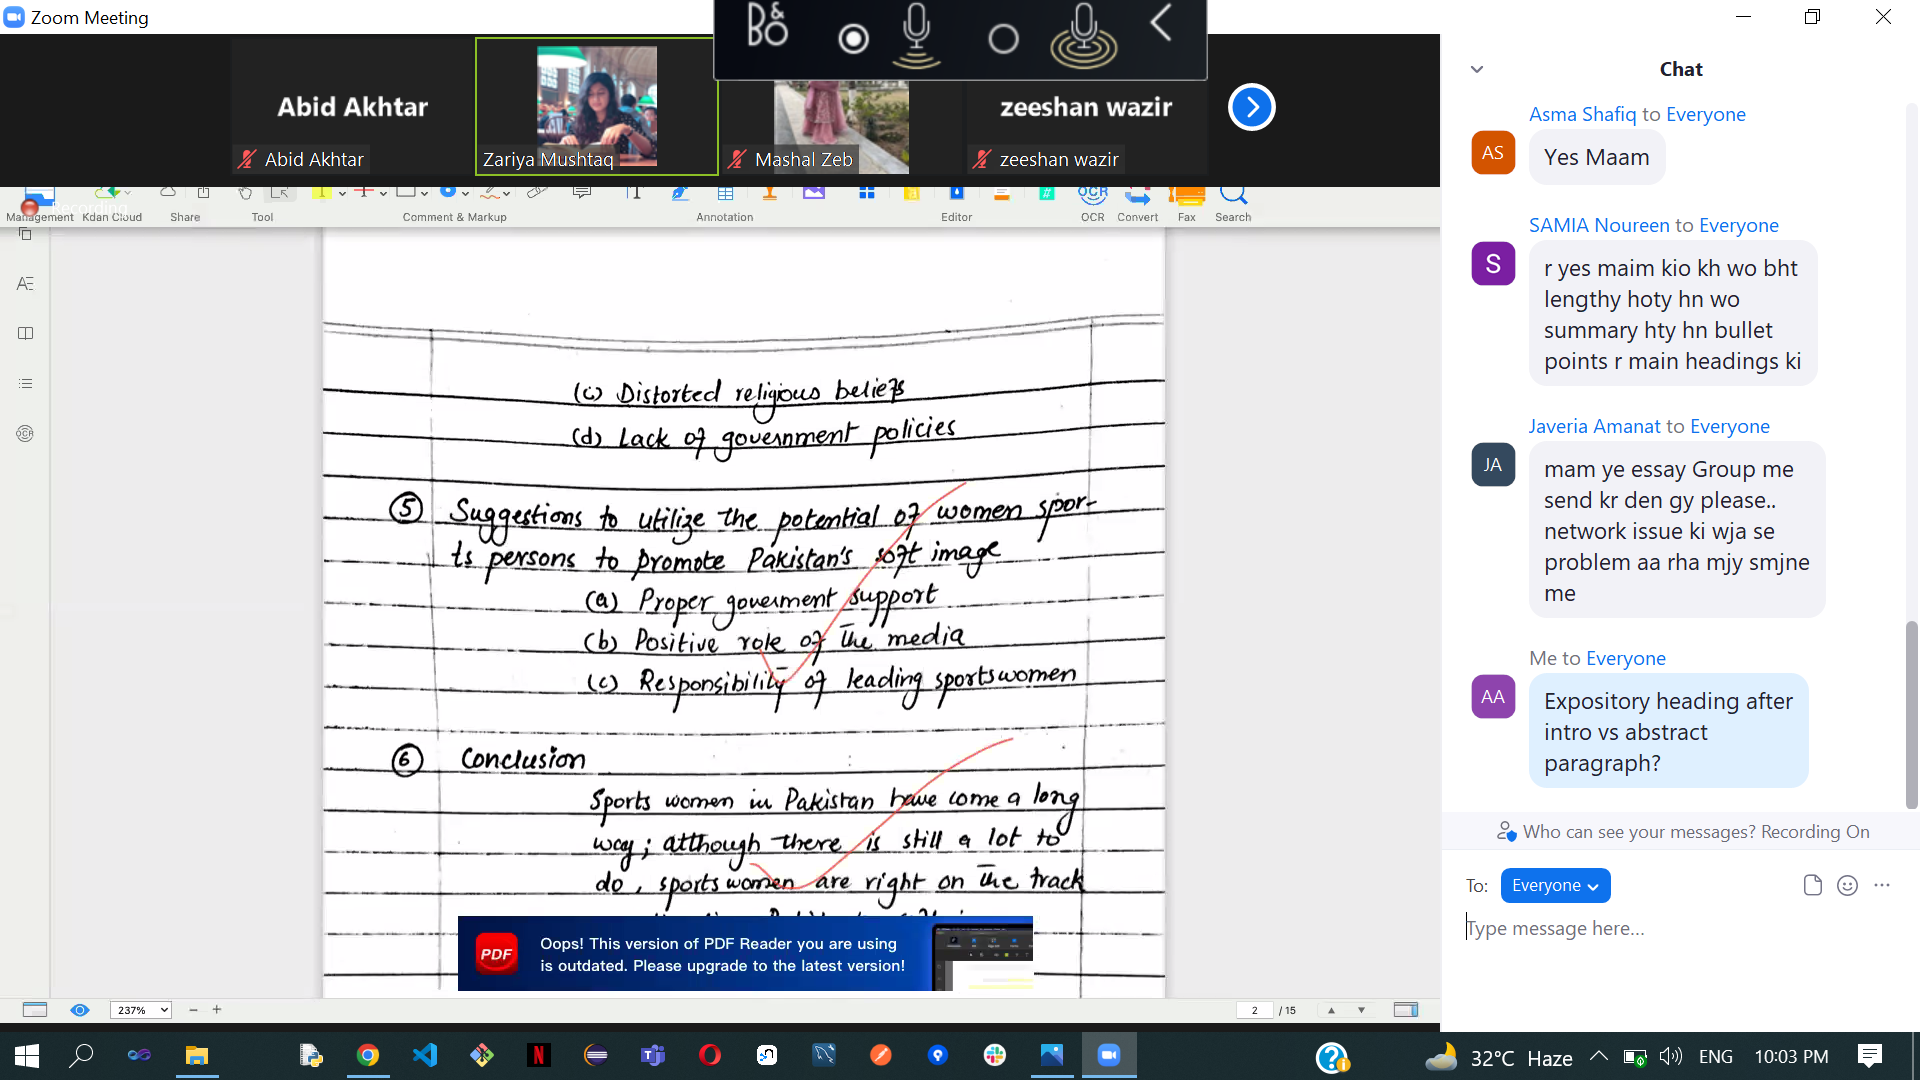 Zoom Meeting
B&O
Abid Akhtar
zeeshan wazir
Abid Akhtar
Zariya Mushtaq
Mashal Zeb
zeeshan wazir
Recording
OCR
Management
Kdan Cloud
Share
Tool
Comment & Markup
Annotation
Editor
OCR
Convert
Fax
Search
(c) Distorted religious beliefs
(d) Lack of government policies
5 Suggestions to utilize the potential of women spor-
ts persons to promote Pakistan's soft image
(a) Proper goverment support
(b) Positive role of the media
(c) Responsibility of leading sportswomen
6 Conclusion
Sports women in Pakistan have come a long
way; although there is still a lot to
do, sportswomen are right on the track
PDF
Oops! This version of PDF Reader you are using
is outdated. Please upgrade to the latest version!
237%
2 / 15
Chat
Asma Shafiq to Everyone
AS
Yes Maam
SAMIA Noureen to Everyone
S
r yes maim kio kh wo bht
lengthy hoty hn wo
summary hty hn bullet
points r main headings ki
Javeria Amanat to Everyone
JA
mam ye essay Group me
send kr den gy please..
network issue ki wja se
problem aa rha mjy smjne
me
Me to Everyone
AA
Expository heading after
intro vs abstract
paragraph?
Who can see your messages? Recording On
To: Everyone
Type message here...
32°C Haze
ENG
10:03 PM